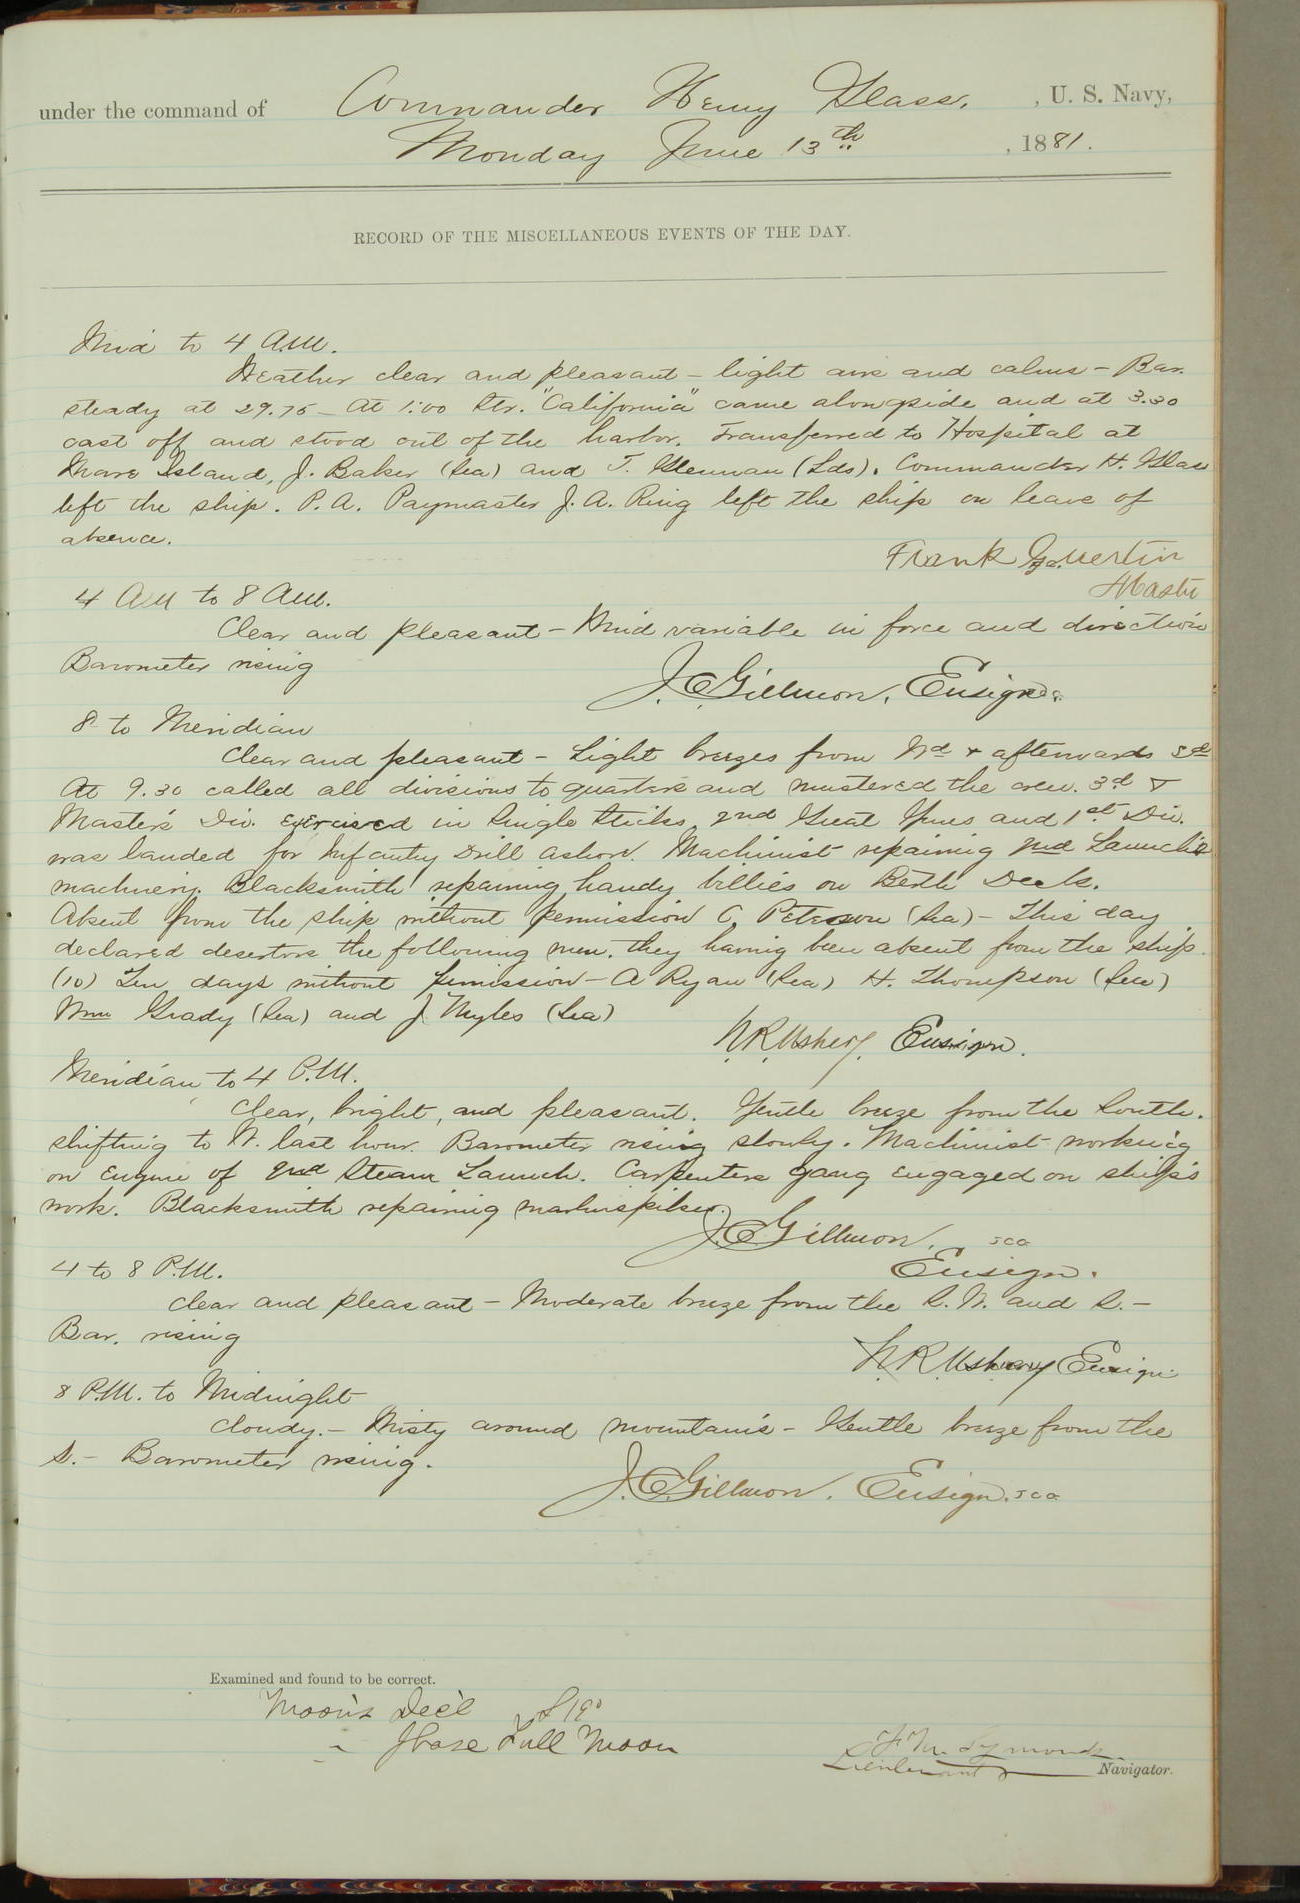 under the command of Commander Henry Glass. , U. S. Navy,
Monday June 13th , 1881.
RECORD OF THE MISCELLANEOUS EVENTS OF THE DAY.
Mid to 4 A.M.
Weather clear and pleasant – light airs and calms – Bar.
steady at 29.75 – At 1:00 Str. "California" came alongside and at 3.30
cast off and stood out of the harbor. Transferred to Hospital at
Mare Island, J. Baker (Sea) and T. Glennan (Lds). Commander H. Glass
left the ship. P. A. Paymaster J. A. Ring left the ship on leave of
absence.
Frank Guertin
Master
4 AM to 8 AM.
Clear and pleasant – Wind variable in force and direction
Barometer rising
J. C. Gillmor, Ensign
8 to Meridian
Clear and pleasant – Light breezes from Wd & afterwards Sd
At 9.30 called all divisions to quarters and mustered the crew. 3d &
Master's Div. exercised in Single Sticks, 2nd Great Guns and 1st Div.
was landed for Infantry Drill ashore. Machinist repairing 2nd Launch's
machinery. Blacksmith repairing handy billies on Berth Deck.
Absent from the ship without permission C. Peterson (Sea) – This day
declared deserters the following men, they having been absent from the ship
(10) Ten days without permission – A Ryan (Sea) H. Thompson (Sea)
Wm Grady (Sea) and J. Myles (Sea)
N. R. Usher, Ensign.
Meridian to 4 P.M.
Clear, bright, and pleasant. Gentle breeze from the South.
shifting to W. last hour. Barometer rising slowly. Machinist working
on Engine of 2nd Steam Launch. Carpenters gang engaged on ship's
work. Blacksmith repairing marlinspikes.
J. C. Gillmor,
Ensign.
4 to 8 P.M.
Clear and pleasant – Moderate breeze from the S. W. and S. –
Bar. rising
N. R. Usher, Ensign
8 P.M. to Midnight
Cloudy. – Misty around mountains – Gentle breeze from the
S. – Barometer rising.
J. C. Gillmor, Ensign.
Examined and found to be correct.
Moon's Dec'l S 19°
" Phase Full Moon
F. M. Symonds
Lieutenant Navigator.